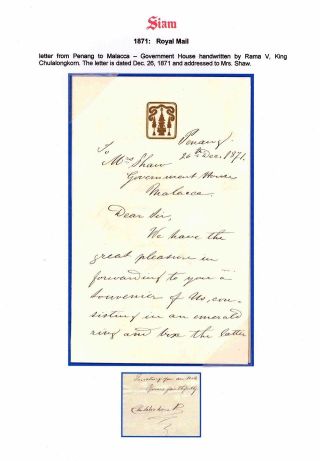 Siam
1871: Royal Mail
letter from Penang to Malacca – Government House handwritten by Rama V, King
Chulalongkorn. The letter is dated Dec. 26, 1871 and addressed to Mrs. Shaw.
Penang
26th Dec. 1871.
To
Mrs Shaw
Government House
Malacca
Dear Sir,
We have the
great pleasure in
forwarding to you a
Souvenier of Us, con-
sisting in an emerald
ring and box the latter
Yours faithfully